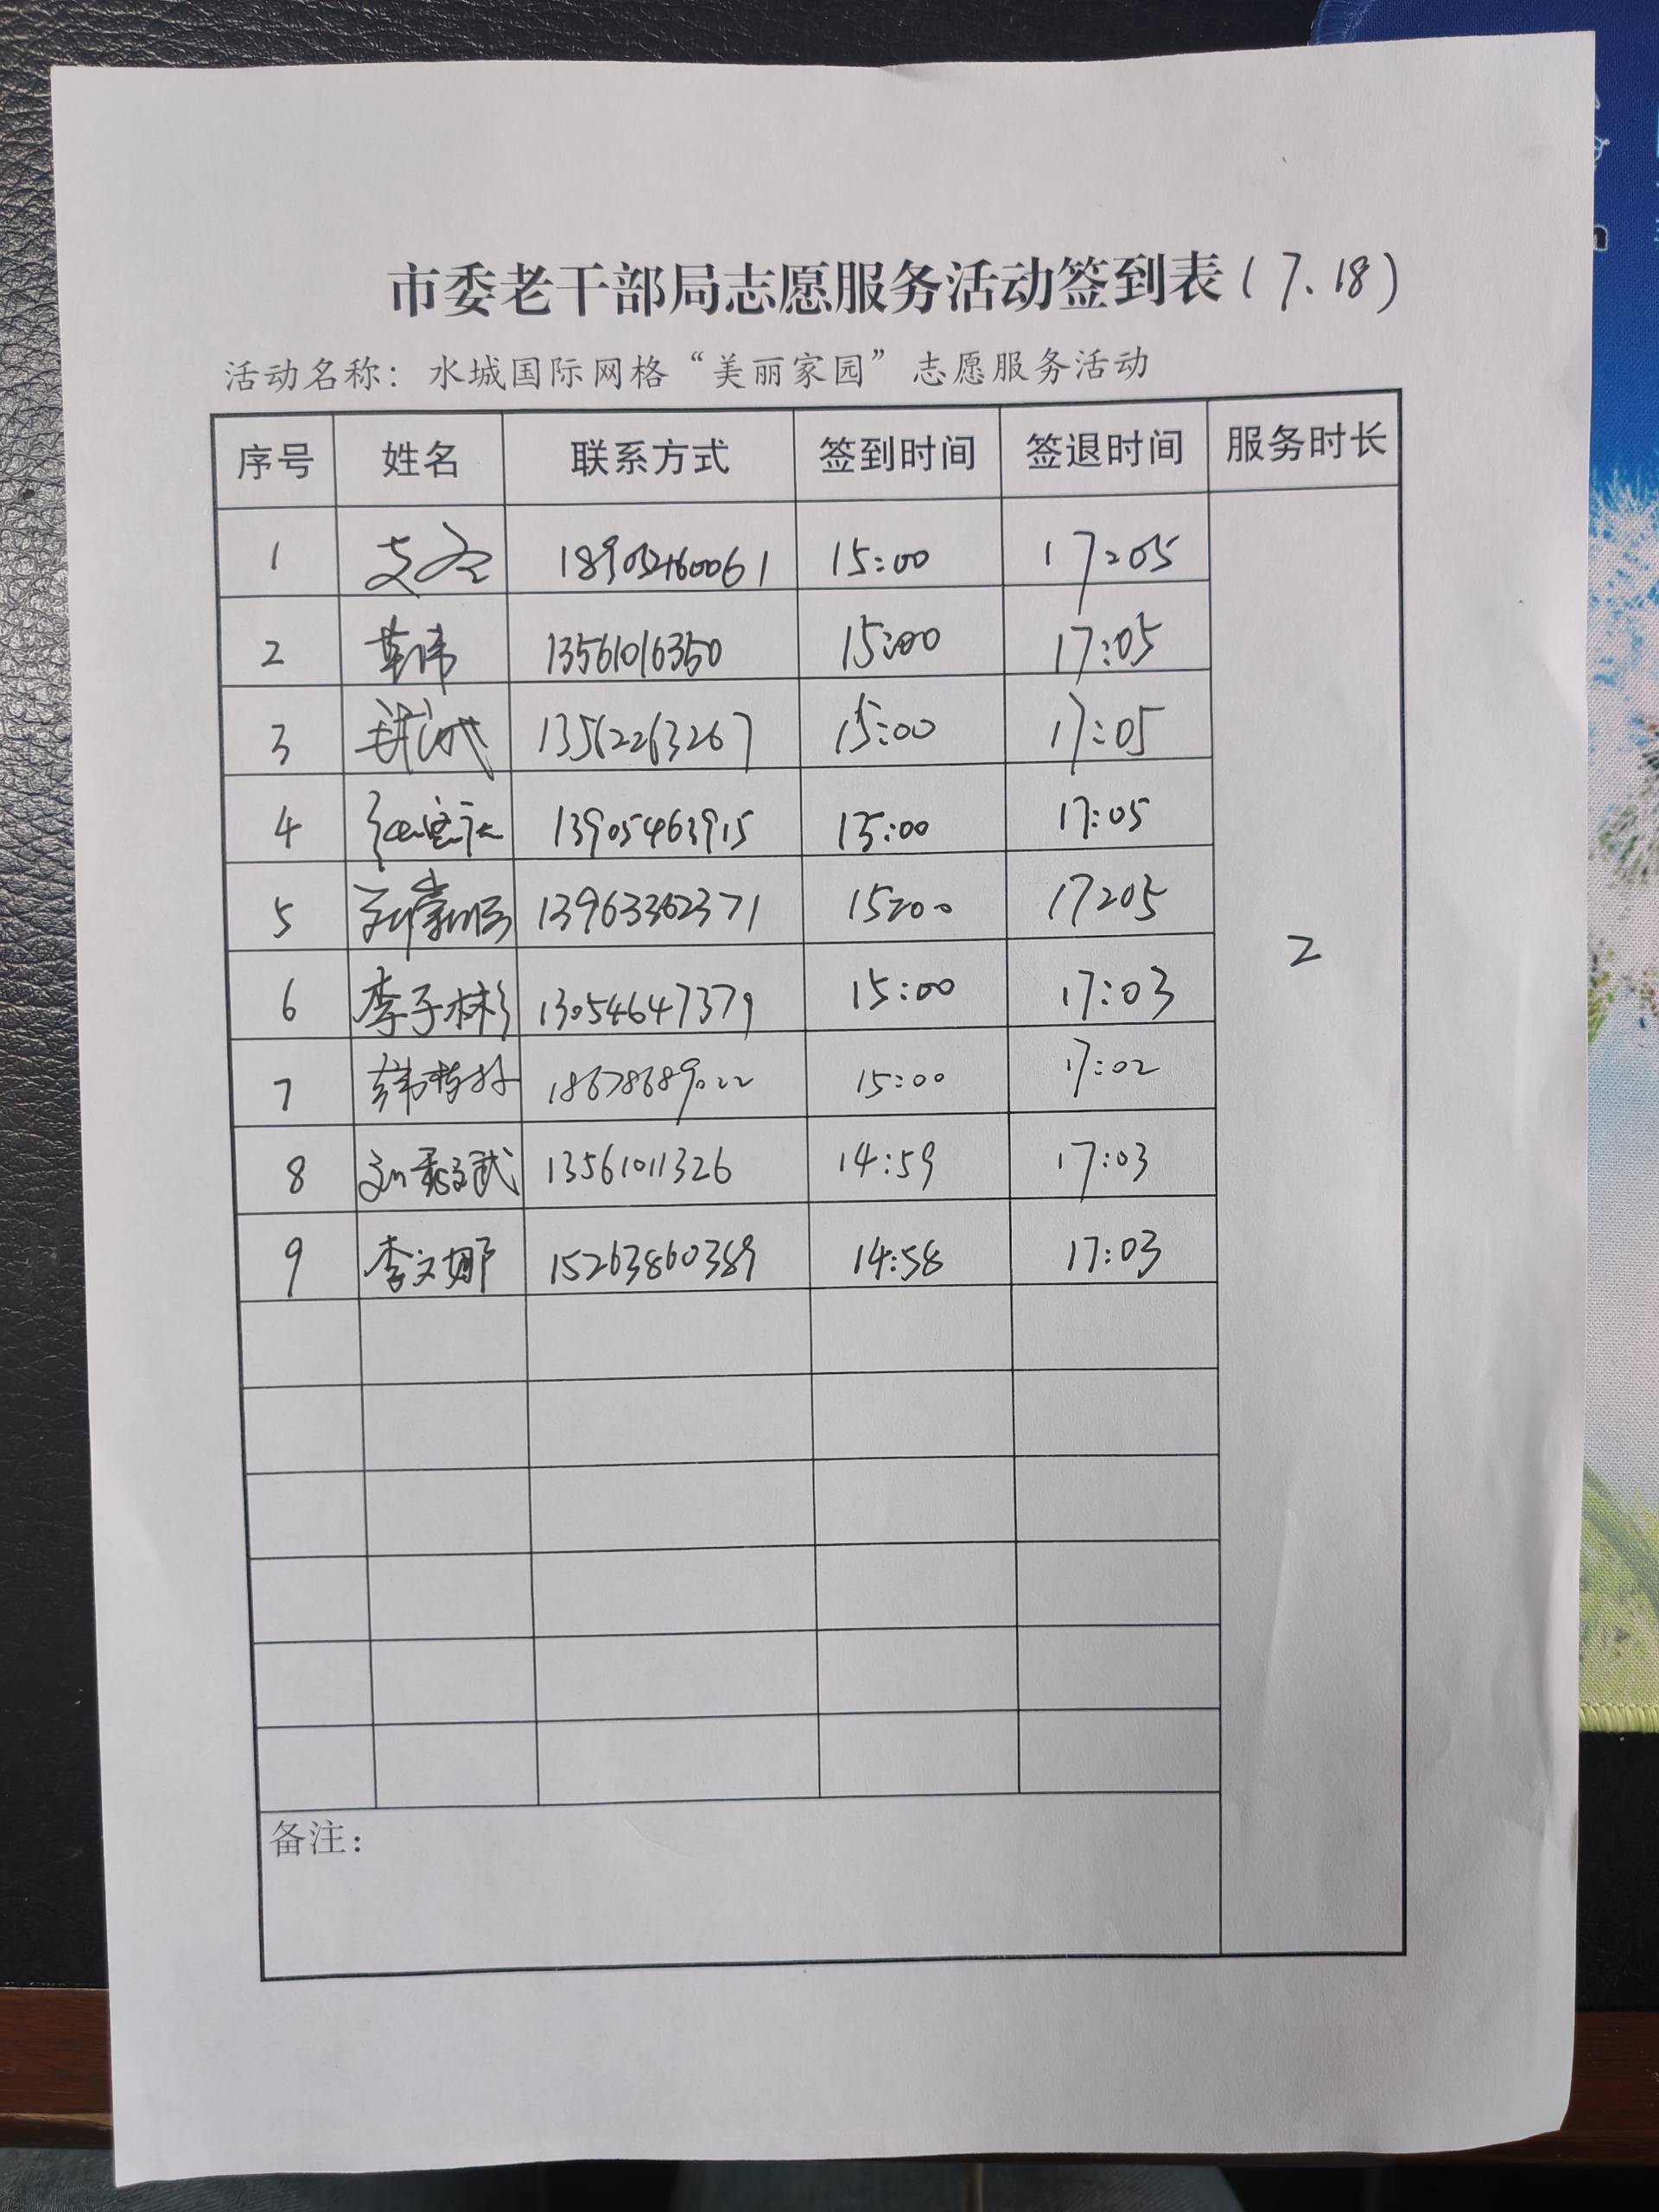 市委老干部局志愿服务活动签到表(7.18)
活动名称：水城国际网格“美丽家园”志愿服务活动
序号 姓名 联系方式 签到时间 签退时间 服务时长
1 18905460061 15:00 17:05
2 13561016350 15:00 17:05
3 13562263267 15:00 17:05
4 13905463915 15:00 17:05
5 13963362371 15:00 17:05
6 李子彬 13054647379 15:00 17:03
7 18678689022 15:00 17:02
8 13561011326 14:59 17:03
9 李文娜 15263860389 14:58 17:03
2
备注：